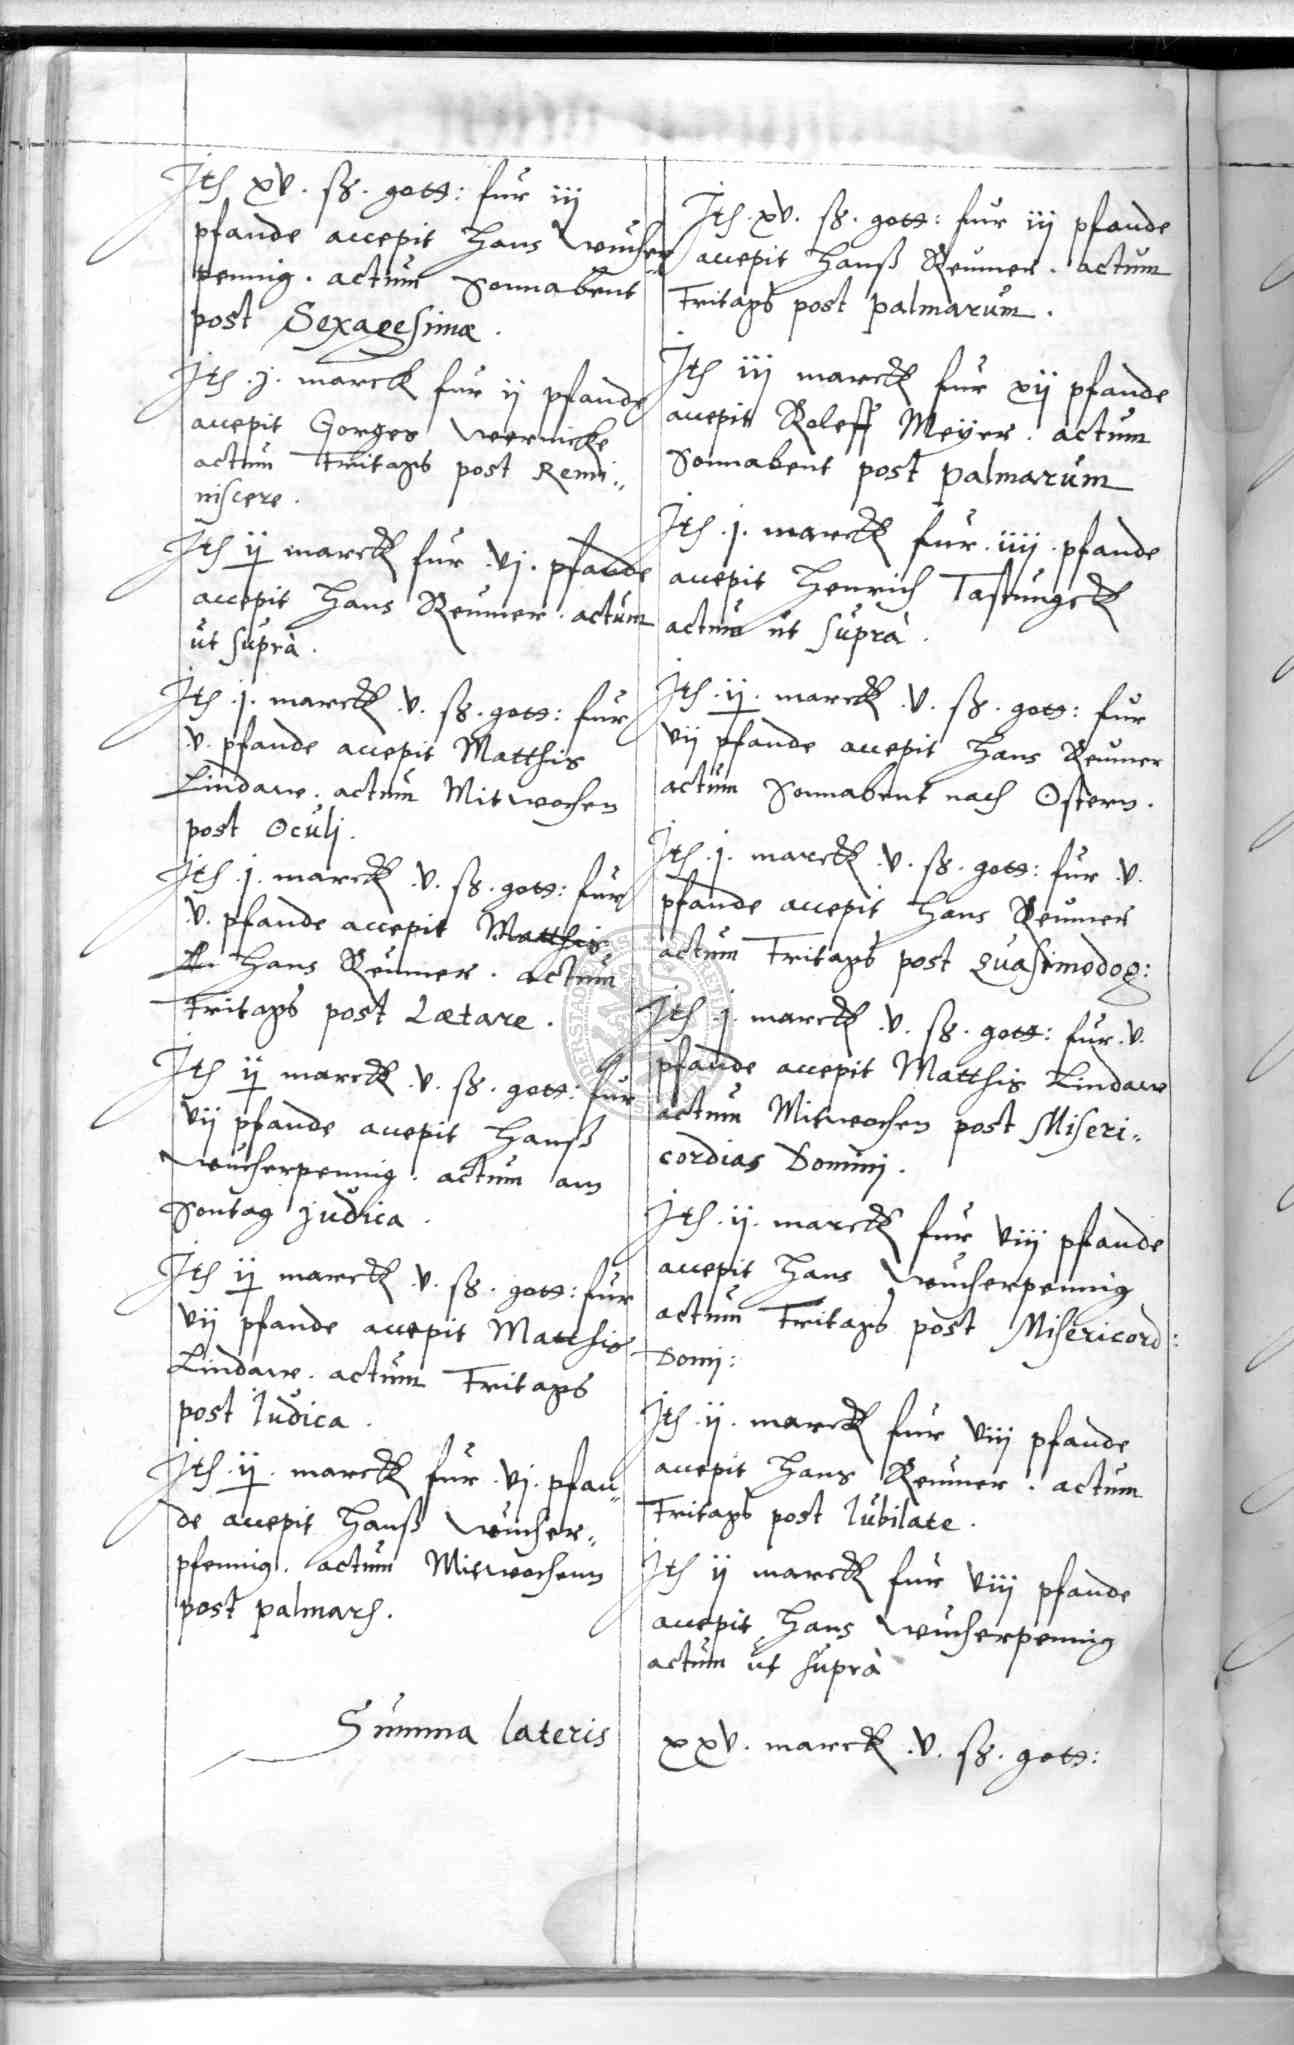 Ite xv. ß. gott: fur iij
pfande accepit Hans Wucher
pennig. actum Sonnabent
post Sexagesimæ.
Ite .j. marck fur ij pfande
accepit Gorges Wernicke
actum Fritags post Remi-
niscere.
Ite ij marck fur .vj. pfande
accepit Hans Reumer. actum
ut suprà.
Ite .j. marck .v. ß. gott: fur
.v. pfande accepit Matthis
Lindaw. actum Mitwochen
post Oculj.
Ite .j. marck .v. ß. gott: fur
.v. pfande accepit Matthis
Hans Reumer. actum
Fritags post Lætare.
Ite ij marck .v. ß. gott: fur
vij pfande accepit Hanß
Wucherpennig. actum am
Sontag judica.
Ite ij marck .v. ß. gott: fur
vij pfande accepit Matthis
Lindaw. actum Fritags
post Iudica.
Ite .ij. marck fur .vj. pfan-
de accepit Hanß Wucher-
pfennig. actum Mitwochenn
post palmar.
Summa lateris
Ite .xv. ß. gott: fur iij pfande
accepit Hanß Reumer. actum
Fritags post palmarum.
Ite iij marck fur xij pfande
accepit Roleff Meyer. actum
Sonnabent post palmarum
Ite .j. marck fur .iiij. pfande
accepit Henrich Tastungck
actum ut suprà.
Ite .ij. marck .v. ß. gott: fur
vij pfande accepit Hans Reumer
actum Sonnabent nach Ostern.
Ite .j. marck .v. ß. gott: fur .v.
pfande accepit Hans Reumer
actum Fritags post Quasimodog:
Ite .j. marck .v. ß. gott: fur .v.
pfande accepit Matthis Lindaw
actum Mitwochen post Miseri-
cordias Dominj.
Ite .ij. marck fur viij pfande
accepit Hans Wucherpennig
actum Fritags post Misericord:
Domj:
Ite .ij. marck fur viij pfande
accepit Hans Reumer. actum
Fritags post Iubilate.
Ite ij marck fur viij pfande
accepit Hans Wucherpennig
actum ut suprà
xxv. marck .v. ß. gott: